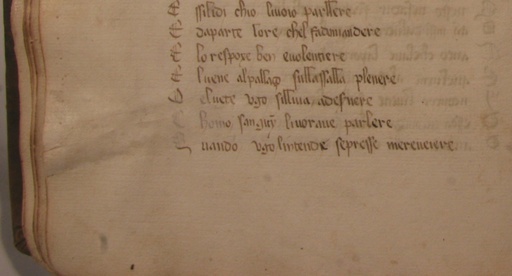 E ssilidi chio livoio parllere
E daparte lore chel fadomandere
E lo respoxe ben evolentiere
E luene alpallaço sullassalla plenere
E eluete ugo silluia adesnere
E homo sanguin livoraue parlere
Q uando ugo lintende sepresse mereueiere